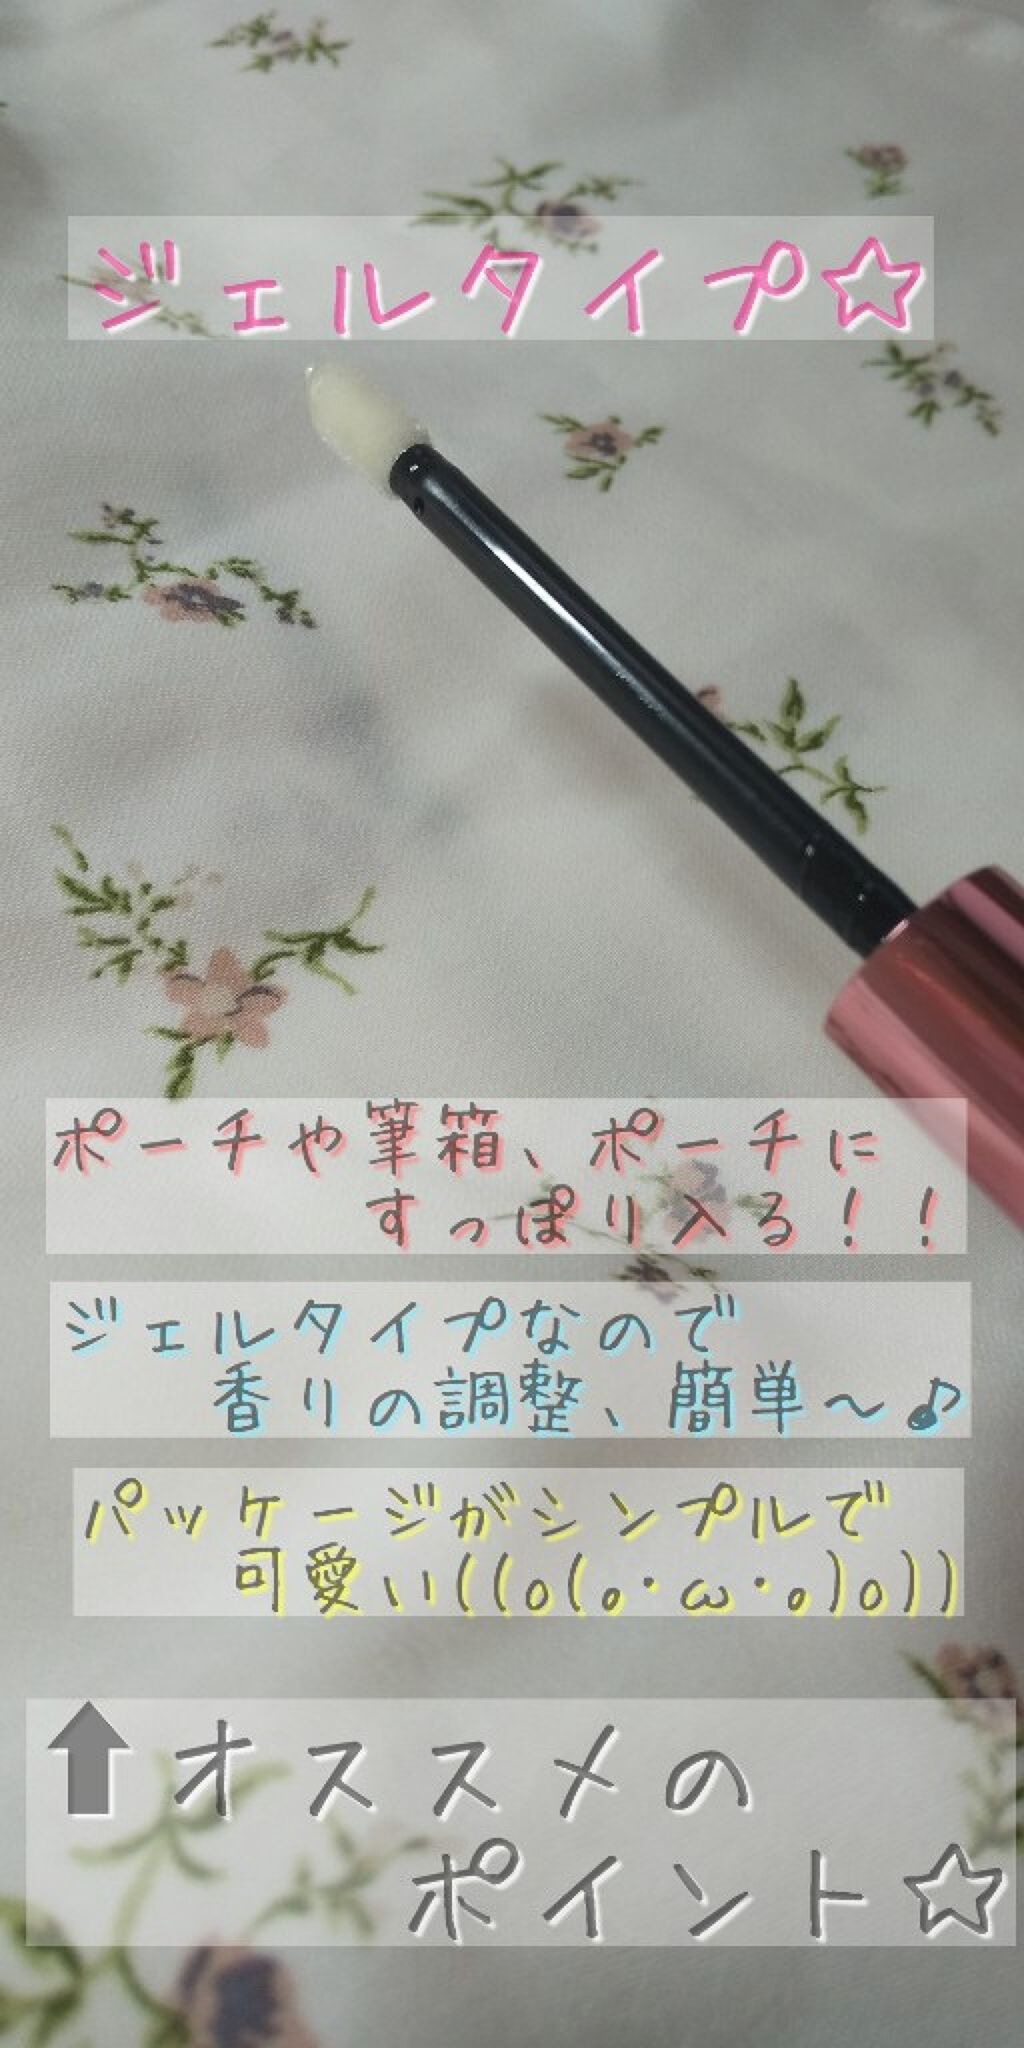 ジェルタイプ☆
ポーチや筆箱、ポーチに
すっぽり入る！！
ジェルタイプなので
香りの調整、簡単～♪
パッケージがシンプルで
可愛い((o(｡･ω･｡)o))
⬆オススメの
ポイント☆